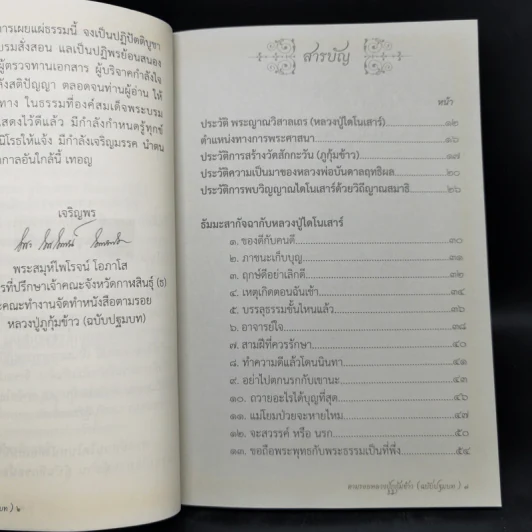 ารเผยแผ่ธรรมนี้ จงเป็นปฏิปัตติบูชา
บรมสั่งสอน แลเป็นปฏิพรย้อนสนอง
ผู้ตรวจทานเอกสาร ผู้บริจาคกำลังใจ
ลังสติปัญญา ตลอดจนท่านผู้อ่าน ให้
ทาง ในธรรมที่องค์สมเด็จพระบรม
แสดงไว้ดีแล้ว มีกำลังกำหนดรู้ทุกข์
นิโรธให้แจ้ง มีกำลังเจริญมรรค นำตน
กาลอันใกล้นี้ เทอญ
เจริญพร
พระสมุห์ไพโรจน์ โอภาโส
ารที่ปรึกษาเจ้าคณะจังหวัดกาฬสินธุ์ (ธ)
ะคณะทำงานจัดทำหนังสือตามรอย
หลวงปู่ภูกุ้มข้าว (ฉบับปฐมบท)
บท ) ๖
สารบัญ
หน้า
ประวัติ พระญาณวิสาลเถร (หลวงปู่ไดโนเสาร์) ๑๒
ตำแหน่งทางการพระศาสนา ๑๖
ประวัติการสร้างวัดสักกะวัน (ภูกุ้มข้าว) ๑๗
ประวัติความเป็นมาของหลวงพ่อบันดาลฤทธิผล ๒๐
ประวัติการพบวิญญาณไดโนเสาร์ด้วยวิถีญาณสมาธิ ๒๖
ธัมมะสากัจฉากับหลวงปู่ไดโนเสาร์
๑. ของดีกับคนดี ๓๐
๒. ภาชนะเก็บบุญ ๓๑
๓. ฤกษ์ดีอย่าเลิกดี ๓๒
๔. เหตุเกิดตอนฉันเช้า ๓๔
๕. บรรลุธรรมชั้นไหนแล้ว ๓๖
๖. อาจารย์ใจ ๓๘
๗. สามผีที่ควรรักษา ๔๐
๘. ทำความดีแล้วโดนนินทา ๔๑
๙. อย่าไปตกนรกกับเขานะ ๔๓
๑๐. ถวายอะไรได้บุญที่สุด ๔๖
๑๑. แม่โยมป่วยจะหายไหม ๔๗
๑๒. จะสวรรค์ หรือ นรก ๕๐
๑๓. ขอถือพระพุทธกับพระธรรมเป็นที่พึ่ง ๕๔
ตามรอยหลวงปู่ภูกุ้มข้าว (ฉบับปฐมบท ) ๗